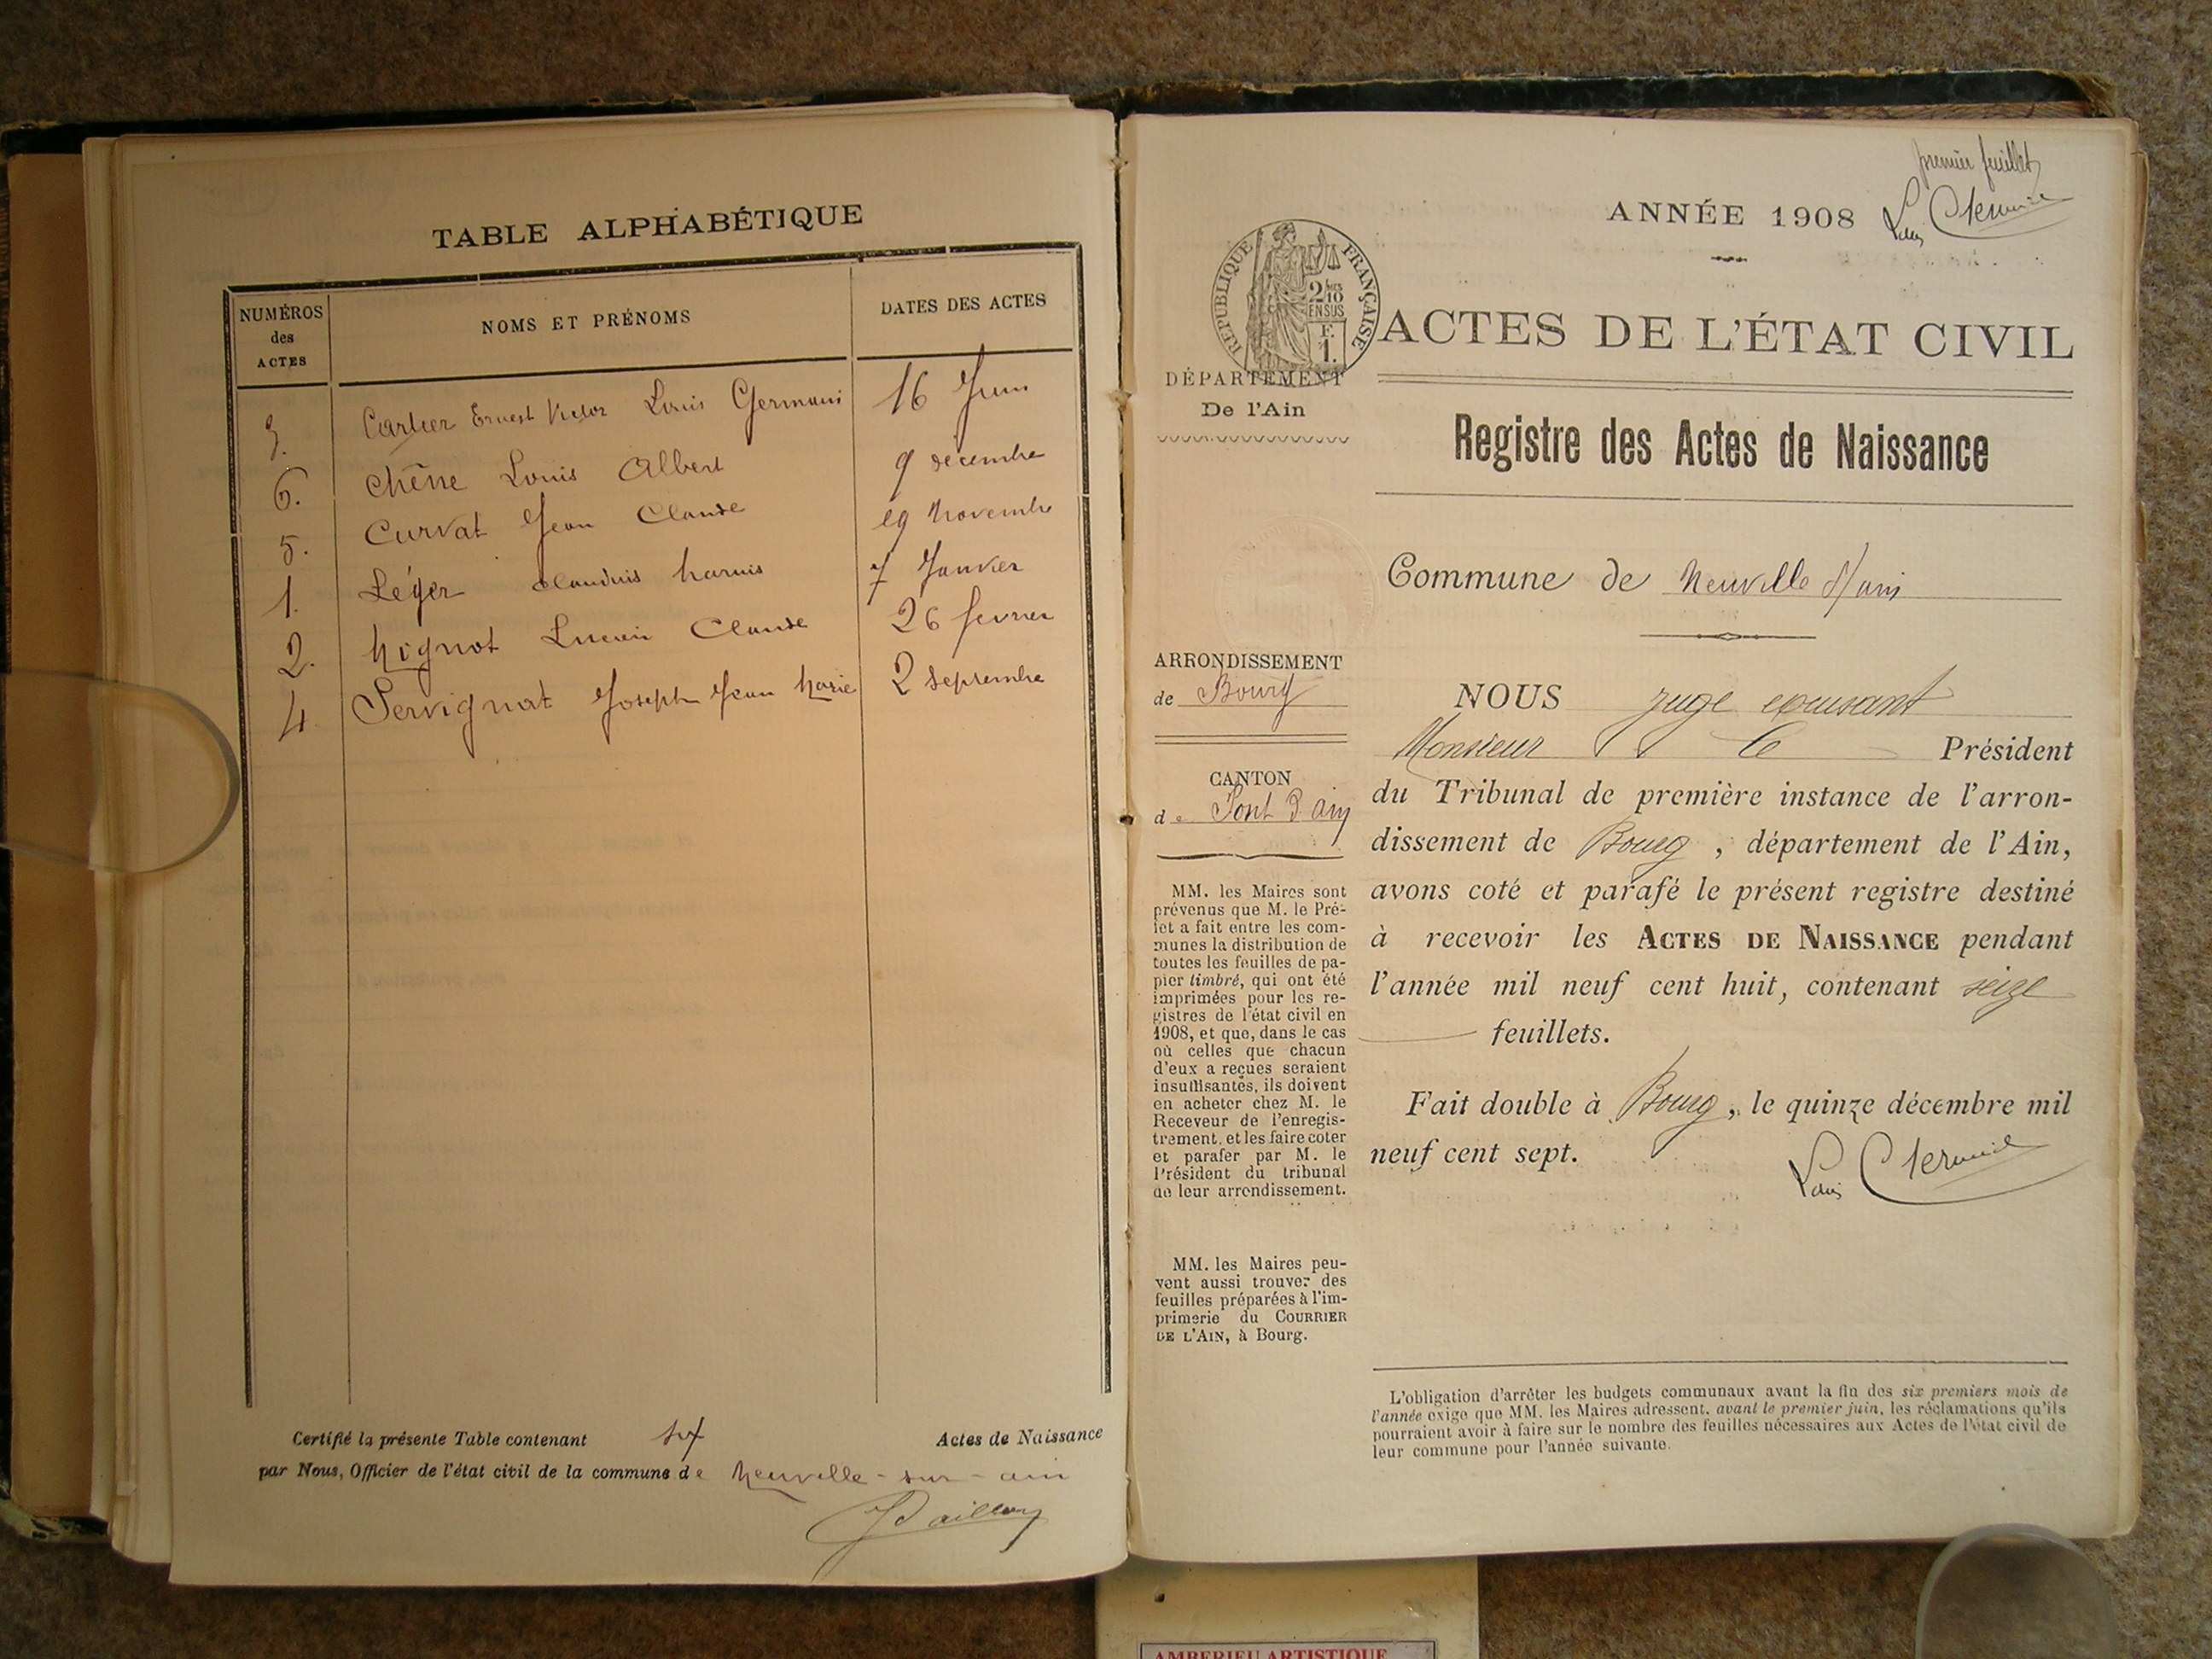 TABLE ALPHABÉTIQUE
NUMÉROS des ACTES
NOMS ET PRÉNOMS
DATES DES ACTES
3. Cartier Ernest Victor Louis Germain 16 Juin
6. Chêne Louis Albert 9 décembre
5. Curvat Jean Claude 19 Novembre
1. Léger Claudius Marius 7 Janvier
2. Mignot Lucien Claude 26 fevrier
4 Servignat Joseph Jean Marie 2 septembre
Certifié la présente Table contenant six Actes de Naissance
par Nous, Officier de l'état civil de la commune de Neuville-sur-ain
premier feuillet
ANNÉE 1908
RÉPUBLIQUE FRANÇAISE
2/10
EN SUS
F.
1.
ACTES DE L'ÉTAT CIVIL
DÉPARTEMENT
De l'Ain
Registre des Actes de Naissance
Commune de Neuville s/ain
ARRONDISSEMENT
de Bourg
CANTON
de Pont d'Ain
MM. les Maires sont
prévenus que M. le Pré-
fet a fait entre les com-
munes la distribution de
toutes les feuilles de pa-
pier timbré, qui ont été
imprimées pour les re-
gistres de l'état civil en
1908, et que, dans le cas
où celles que chacun
d'eux a reçues seraient
insuffisantes, ils doivent
en acheter chez M. le
Receveur de l'enregis-
trement, et les faire coter
et parafer par M. le
Président du tribunal
de leur arrondissement.
MM. les Maires peu-
vent aussi trouver des
feuilles préparées à l'im-
primerie du COURRIER
DE L'AIN, à Bourg.
NOUS juge excusant
Monsieur le Président
du Tribunal de première instance de l'arron-
dissement de Bourg, département de l'Ain,
avons coté et parafé le présent registre destiné
à recevoir les ACTES DE NAISSANCE pendant
l'année mil neuf cent huit, contenant seize
feuillets.
Fait double à Bourg, le quinze décembre mil
neuf cent sept.
L'obligation d'arrêter les budgets communaux avant la fin des six premiers mois de
l'année exige que MM. les Maires adressent, avant le premier juin, les réclamations qu'ils
pourraient avoir à faire sur le nombre des feuilles nécessaires aux Actes de l'état civil de
leur commune pour l'année suivante.
AMBERIEU ARTISTIQUE